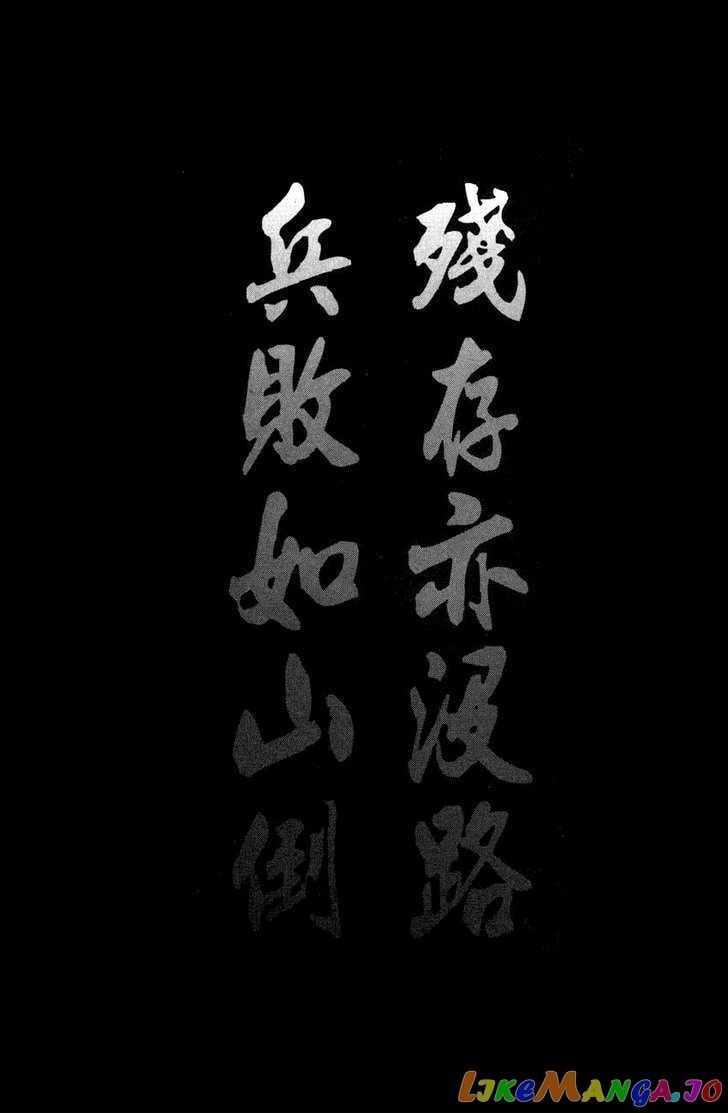 殘存亦沒路
兵敗如山倒
LIKEMANGA.IO